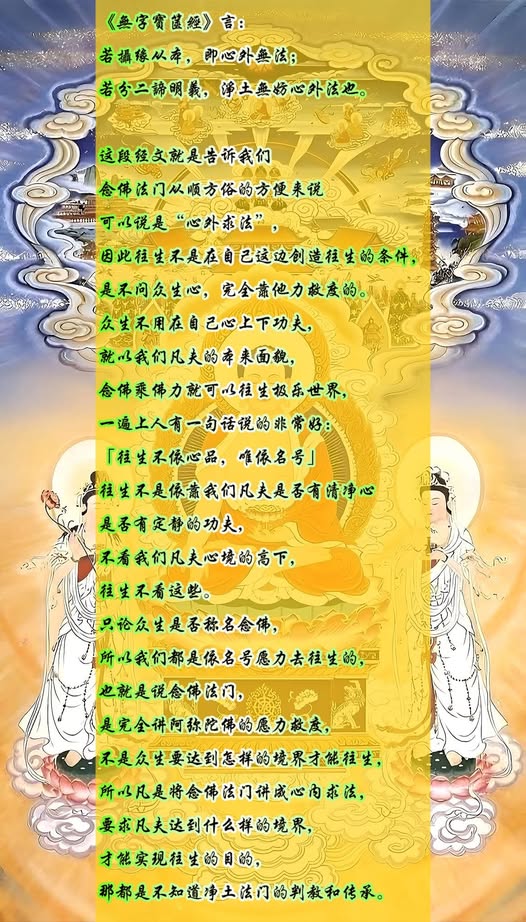 《無字寶篋經》言：
若攝緣从本，即心外無法；
若分二諦明義，淨土無妨心外法也。
这段经文就是告诉我们
念佛法门从顺方俗的方便来说
可以说是“心外求法”，
因此往生不是在自己这边创造往生的条件，
是不问众生心，完全靠他力救度的。
众生不用在自己心上下功夫，
就以我们凡夫的本来面貌，
念佛乘佛力就可以往生极乐世界，
一遍上人有一句话说的非常好：
「往生不依心品，唯依名号」
往生不是依靠我们凡夫是否有清净心
是否有定静的功夫，
不看我们凡夫心境的高下，
往生不看这些。
只论众生是否称名念佛，
所以我们都是依名号愿力去往生的，
也就是说念佛法门，
是完全讲阿弥陀佛的愿力救度，
不是众生要达到怎样的境界才能往生，
所以凡是将念佛法门讲成心内求法，
要求凡夫达到什么样的境界，
才能实现往生的目的，
那都是不知道净土法门的判教和传承。